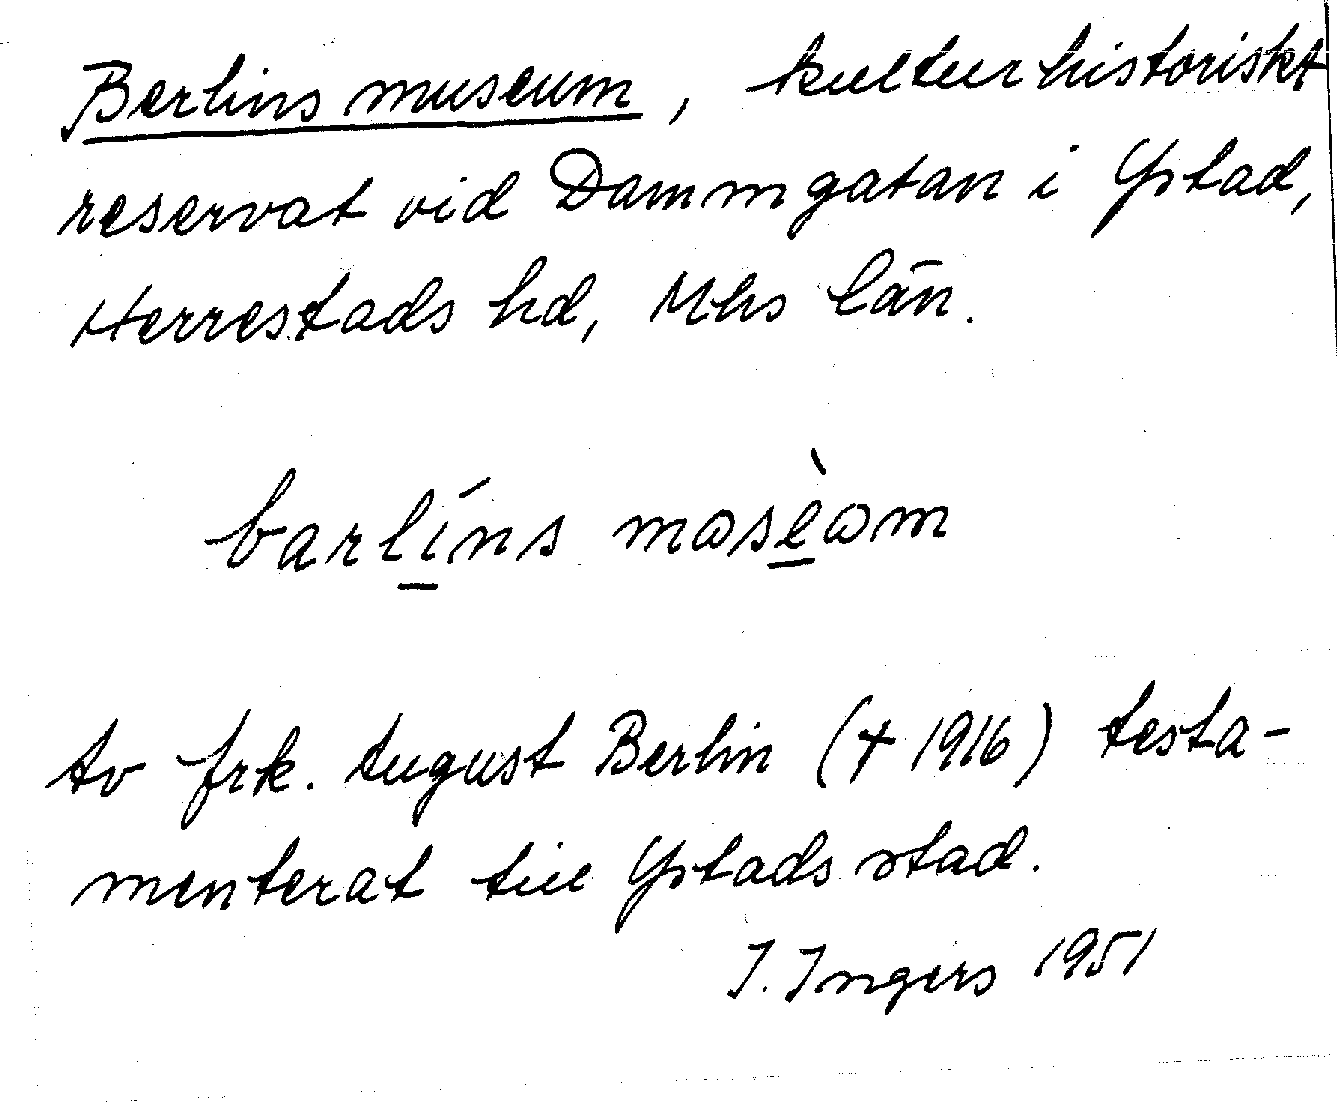 Berlins museum, kulturhistoriskt
reservat vid Dammgatan i Ystad,
Herrestads hd, Mhs län.
barlí̱ns mɷsè̱ɷm
Av frk. August Berlin († 1916) testa-
menterat till Ystads stad.
I. Ingers 1951